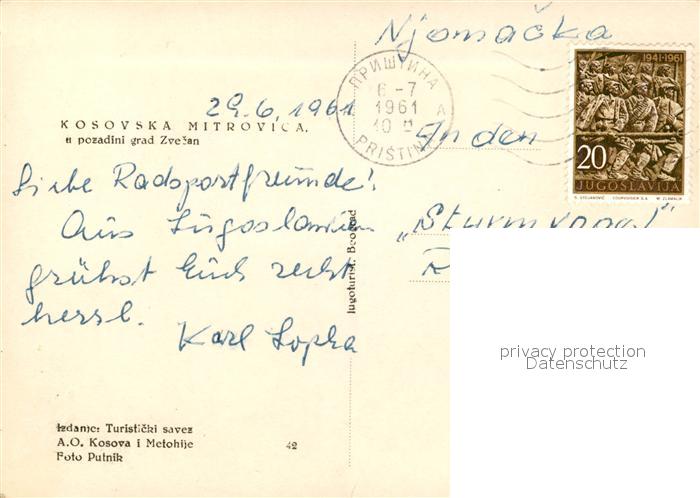 Njomačka
ПРИШТИНА
6 - 7
1961
10
A
PRIŠTINA
1941-1961
20
JUGOSLAVIJA
29.6.1961
KOSOVSKA MITROVICA,
u pozadini grad Zvečan
An den
Liebe Radsportfreunde!
Aus Jugoslawien
„Sturmvogel"
grüßt Euch recht
herzl.
Karl Lopka
Jugoturist, Beograd
privacy protection
Datenschutz
Izdanje: Turistički savez
A.O. Kosova i Metohije
42
Foto Putnik